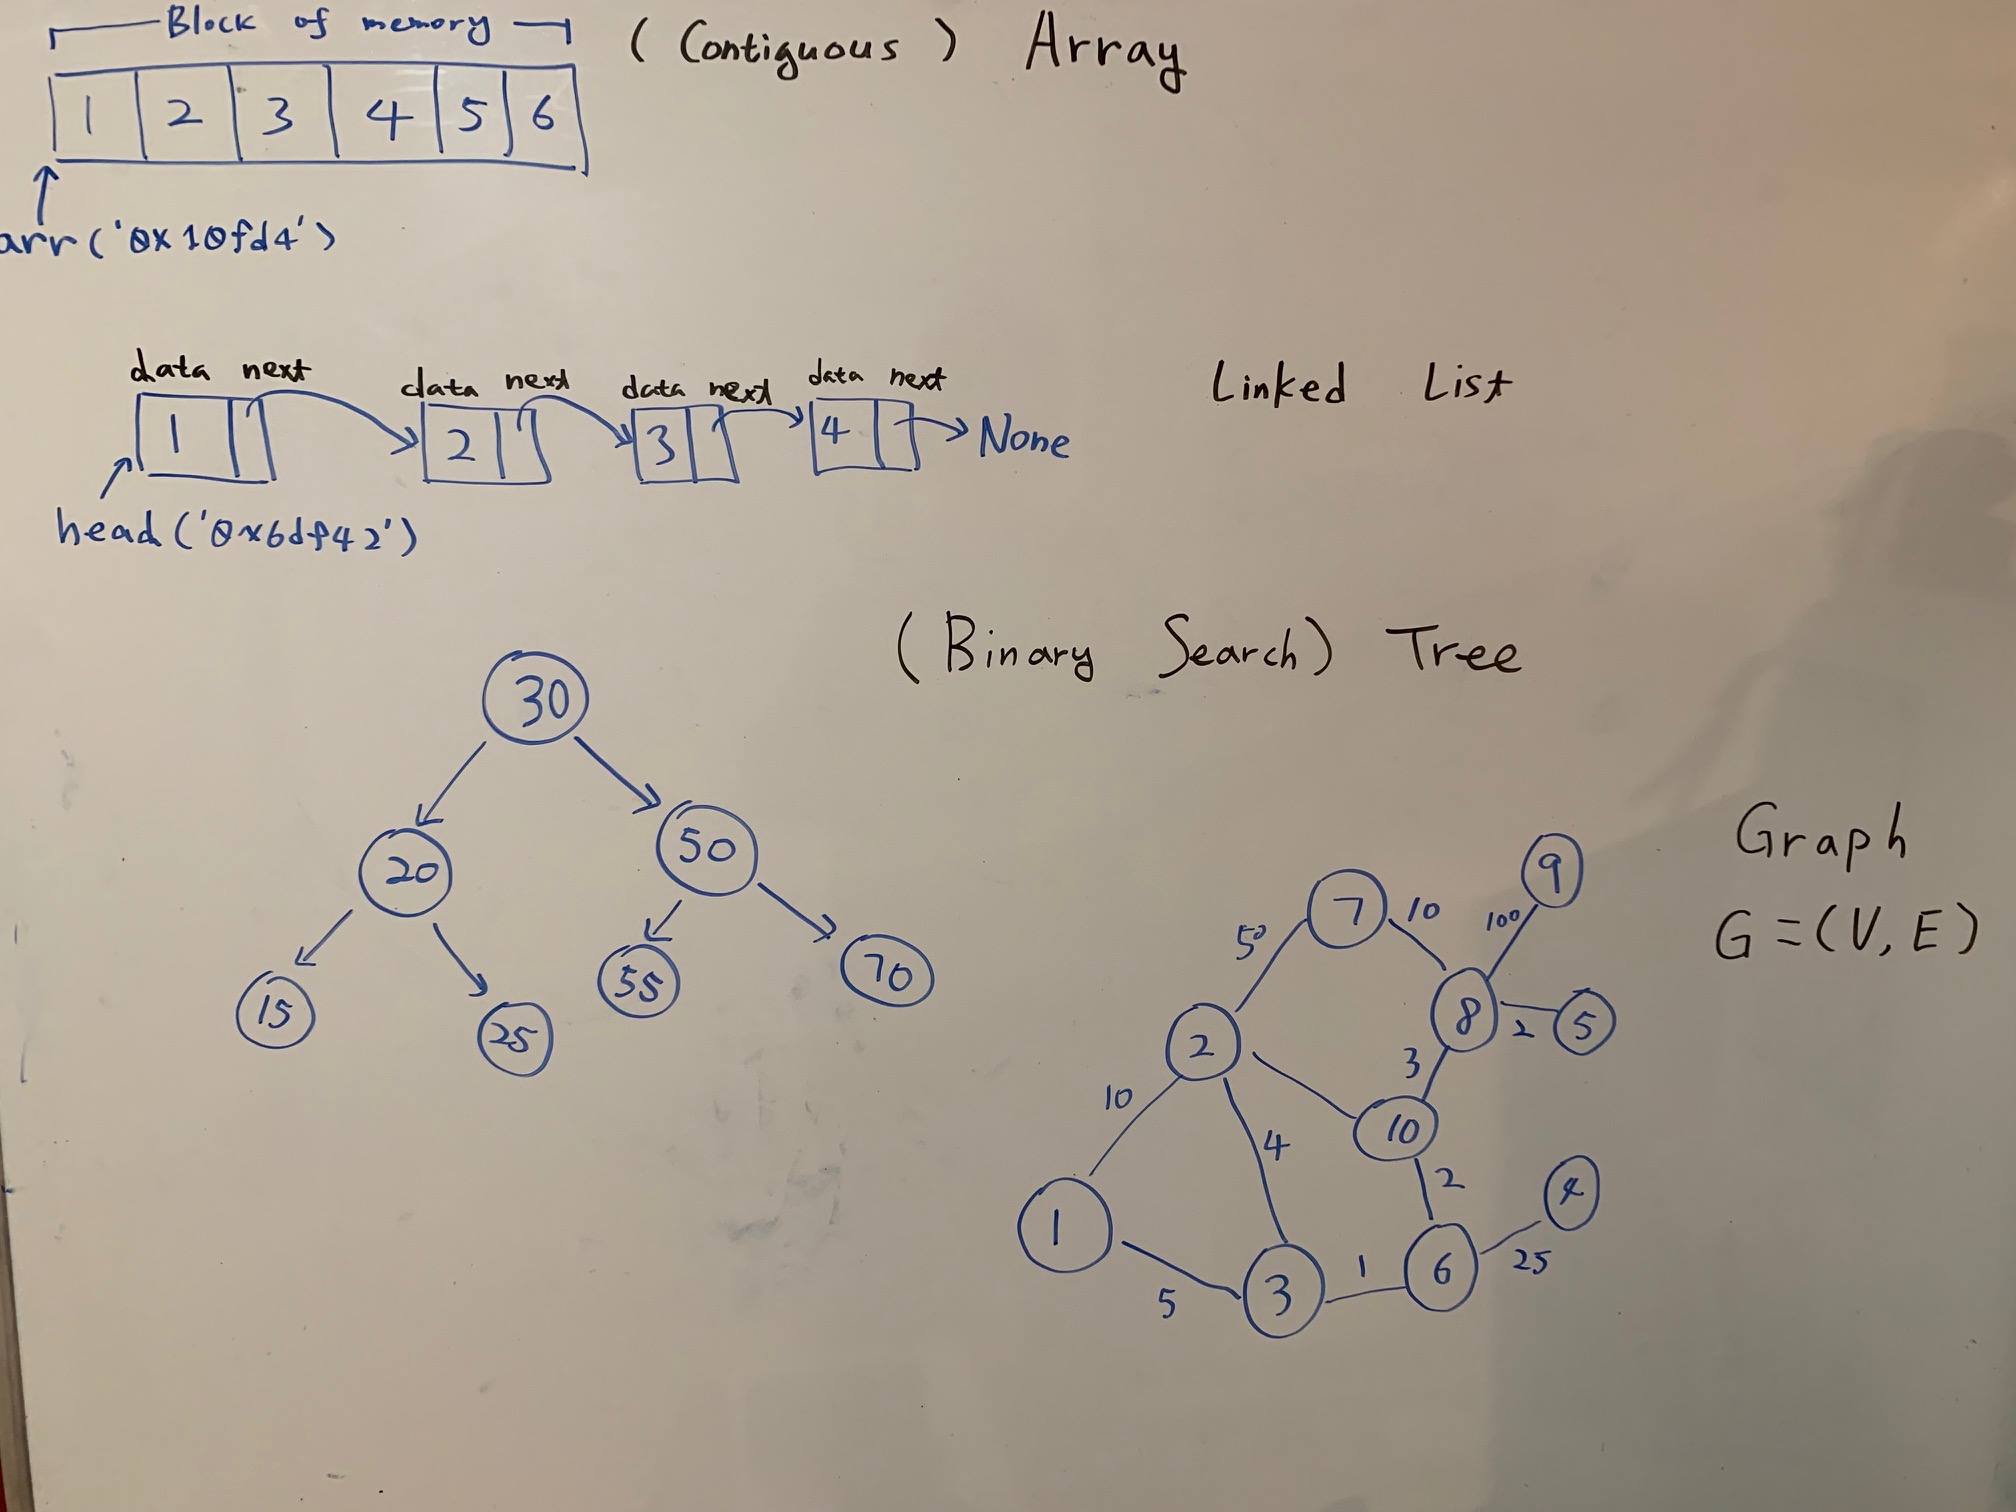 Block of memory
(Contiguous) Array
1 2 3 4 5 6
arr('0x10fd4')
data next data next data next data next
Linked List
1 2 3 4 None
head('0x6df42')
(Binary Search) Tree
30
20 50
15 25 55 70
Graph
G=(V,E)
9
7 10 100
50
8 2 5
2
3
10
10
4
2
4
1
6 25
3 1
5